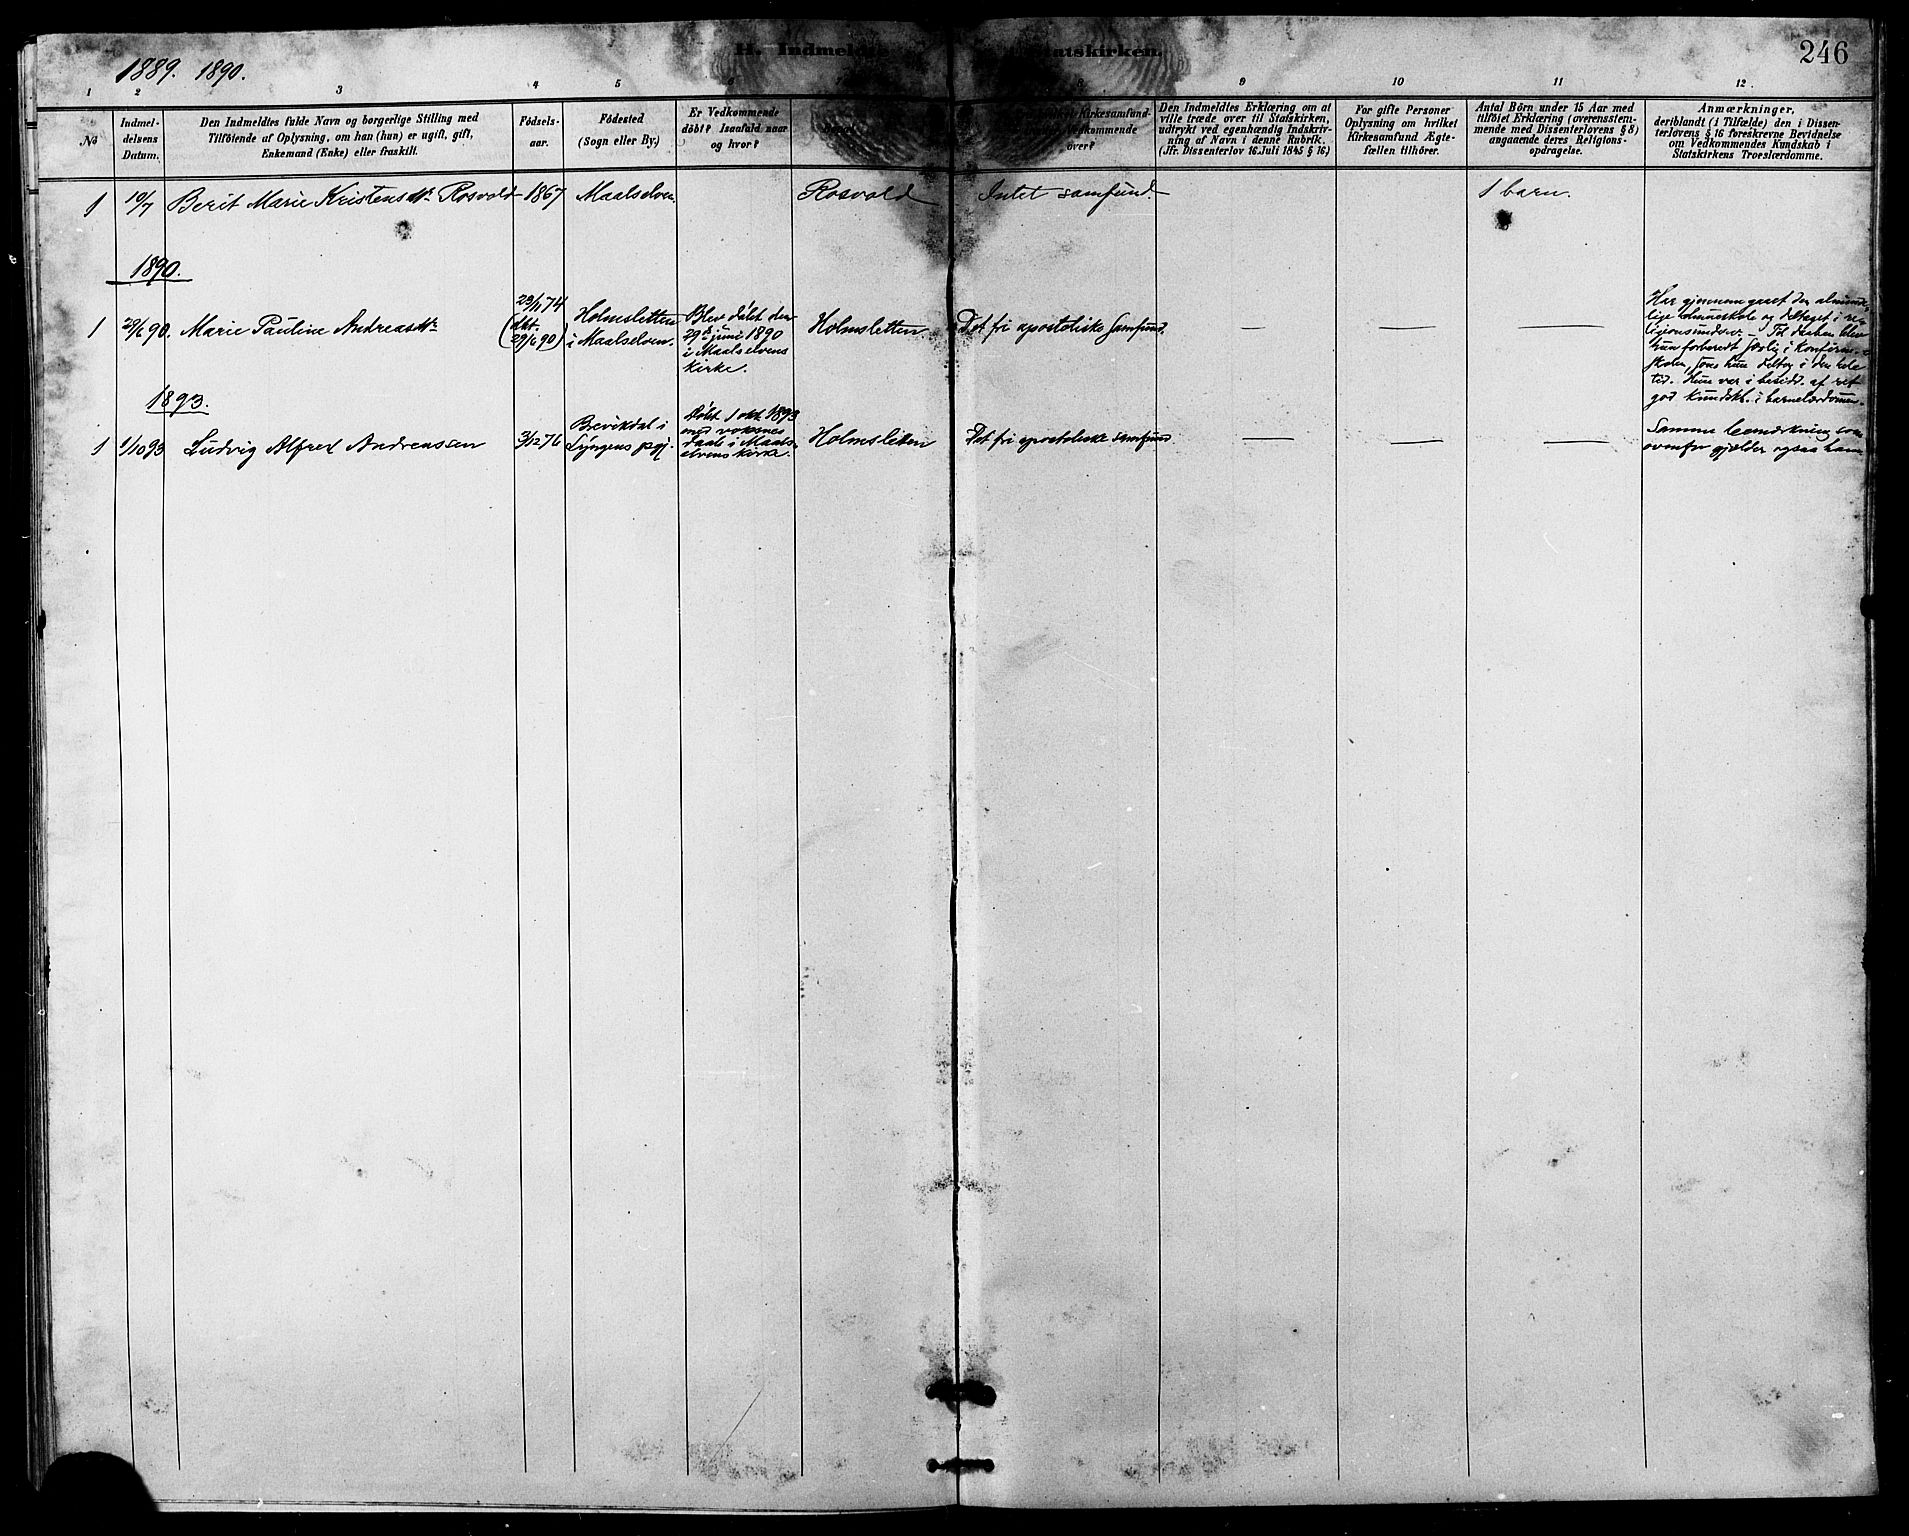 246
H. Indmeldte Statskirken.
1889. 1890.
1 2 3 4 5 6 8 9 10 11 12.
No
Indmel-
delsens
Datum.
Den Indmeldtes fulde Navn og borgerlige Stilling med
Tilföiende af Oplysning, om han (hun) er ugift, gift,
Enkemand (Enke) eller fraskilt.
Födsels-
aar.
Födested
(Sogn eller By.)
Er Vedkommende
döbt? Isaafald, naar
og hvor?
Kirkesamfund
Vedkommende
over?
Den Indmeldtes Erklæring om at
ville træde over til Statskirken,
udtrykt ved egenhændig Indskriv-
ning af Navn i denne Rubrik.
(Jfr. Dissenterlov 16. Juli 1845 § 16.)
For gifte Personer
Oplysning om hvilket
Kirkesamfund Ægte-
fællen tilhörer.
Antal Börn under 15 Aar med
tilföiet Erklæring (overensstem-
mende med Dissenterlovens § 8)
angaaende deres Religions-
opdragelse.
Anmærkninger,
deriblandt (i Tilfælde) den i Dissen-
terlovens § 16 foreskrevne Bevidnelse
om Vedkommendes Kundskab i
Statskirkens Troeslærdomme.
1 10/7 Berit Marie Kristensdtr. Rosvold 1867 Maalselven. Rosvold Intet samfund. 1 barn.
1890.
1 29/6 90. Marie Pauline Andreasdtr.
23/11 74
(dbt.
29/6 90)
Holmsletten
i Maalselven.
Blev døbt den
29de juni 1890
i Maalselvens
kirke.
Holmsletten
Det fri apostoliske Samfund. — — —
Har gjennemgaaet den alminde-
lige folkeskole og deltaget i re-
ligionsunderv. — Til daaben blev
hun forberedt særlig i konfirm.-
skolen, som hun deltog i den hele
tid. Hun var i besidd. af ret
god kundsk. i barnelærdommen.
1893.
1 1/10 93 Ludvig Alfred Andreassen 3/12 76
Brevikdal i
Lyngens pgj.
Døbt 1 okt. 1893
med voksnes
daab i Maals-
elvens kirke.
Holmsletten
Det fri apostoliske samfund — — —
Samme bemærkning som
ovenfor gjælder ogsaa ham